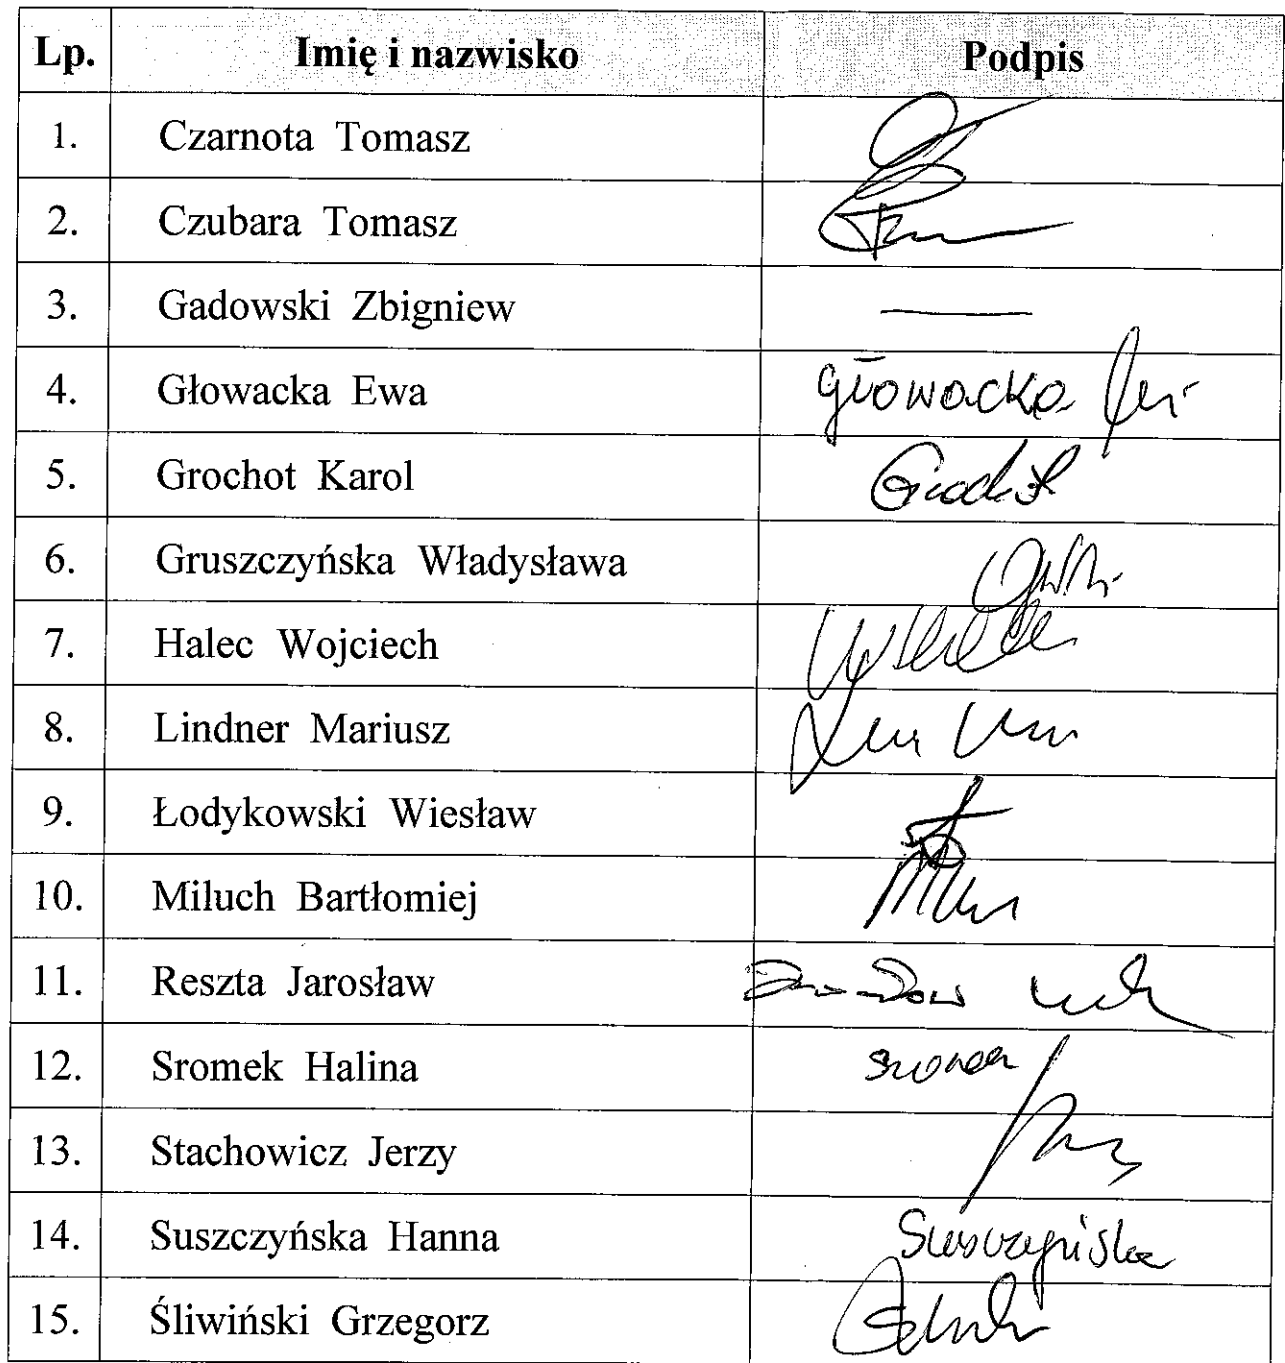 Lp. Imię i nazwisko Podpis
1. Czarnota Tomasz
2. Czubara Tomasz
3. Gadowski Zbigniew —
4. Głowacka Ewa Głowacka
5. Grochot Karol
6. Gruszczyńska Władysława
7. Halec Wojciech
8. Lindner Mariusz
9. Łodykowski Wiesław
10. Miluch Bartłomiej
11. Reszta Jarosław
12. Sromek Halina
13. Stachowicz Jerzy
14. Suszczyńska Hanna Suszczyńska
15. Śliwiński Grzegorz